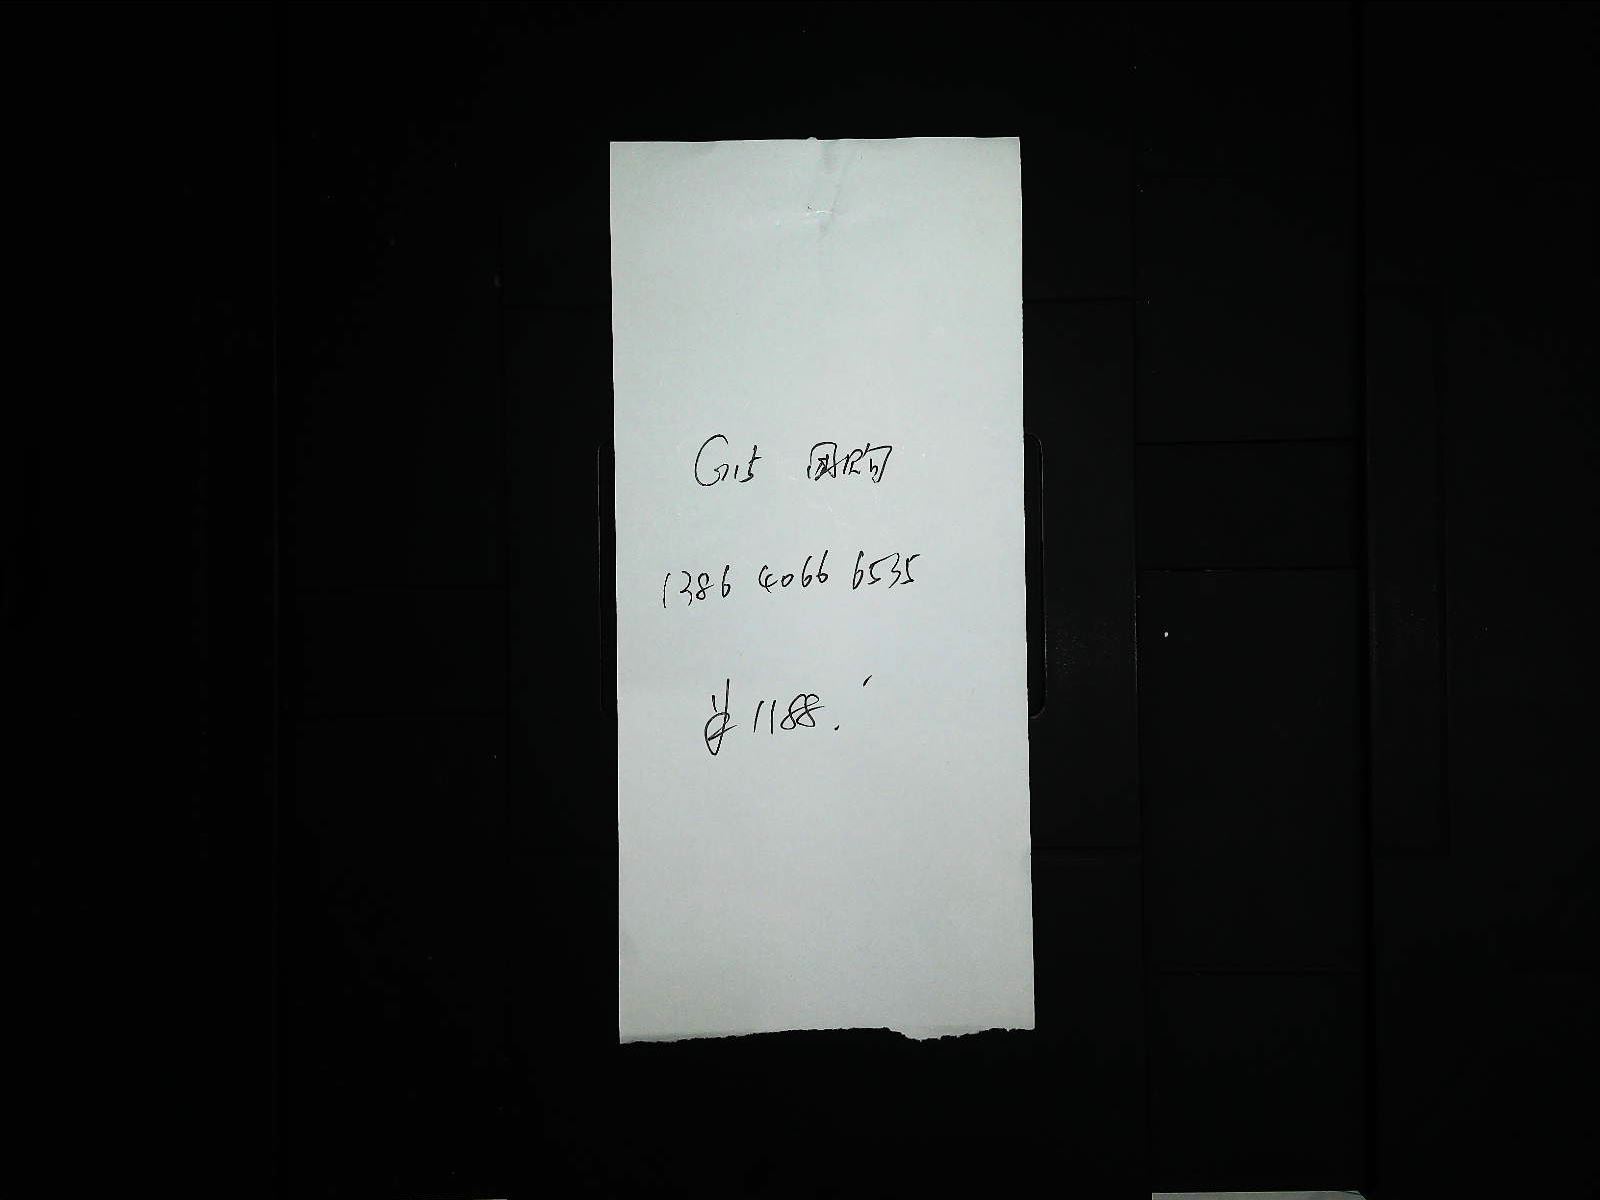 G15 团购
1386 4066 6535
¥1188.